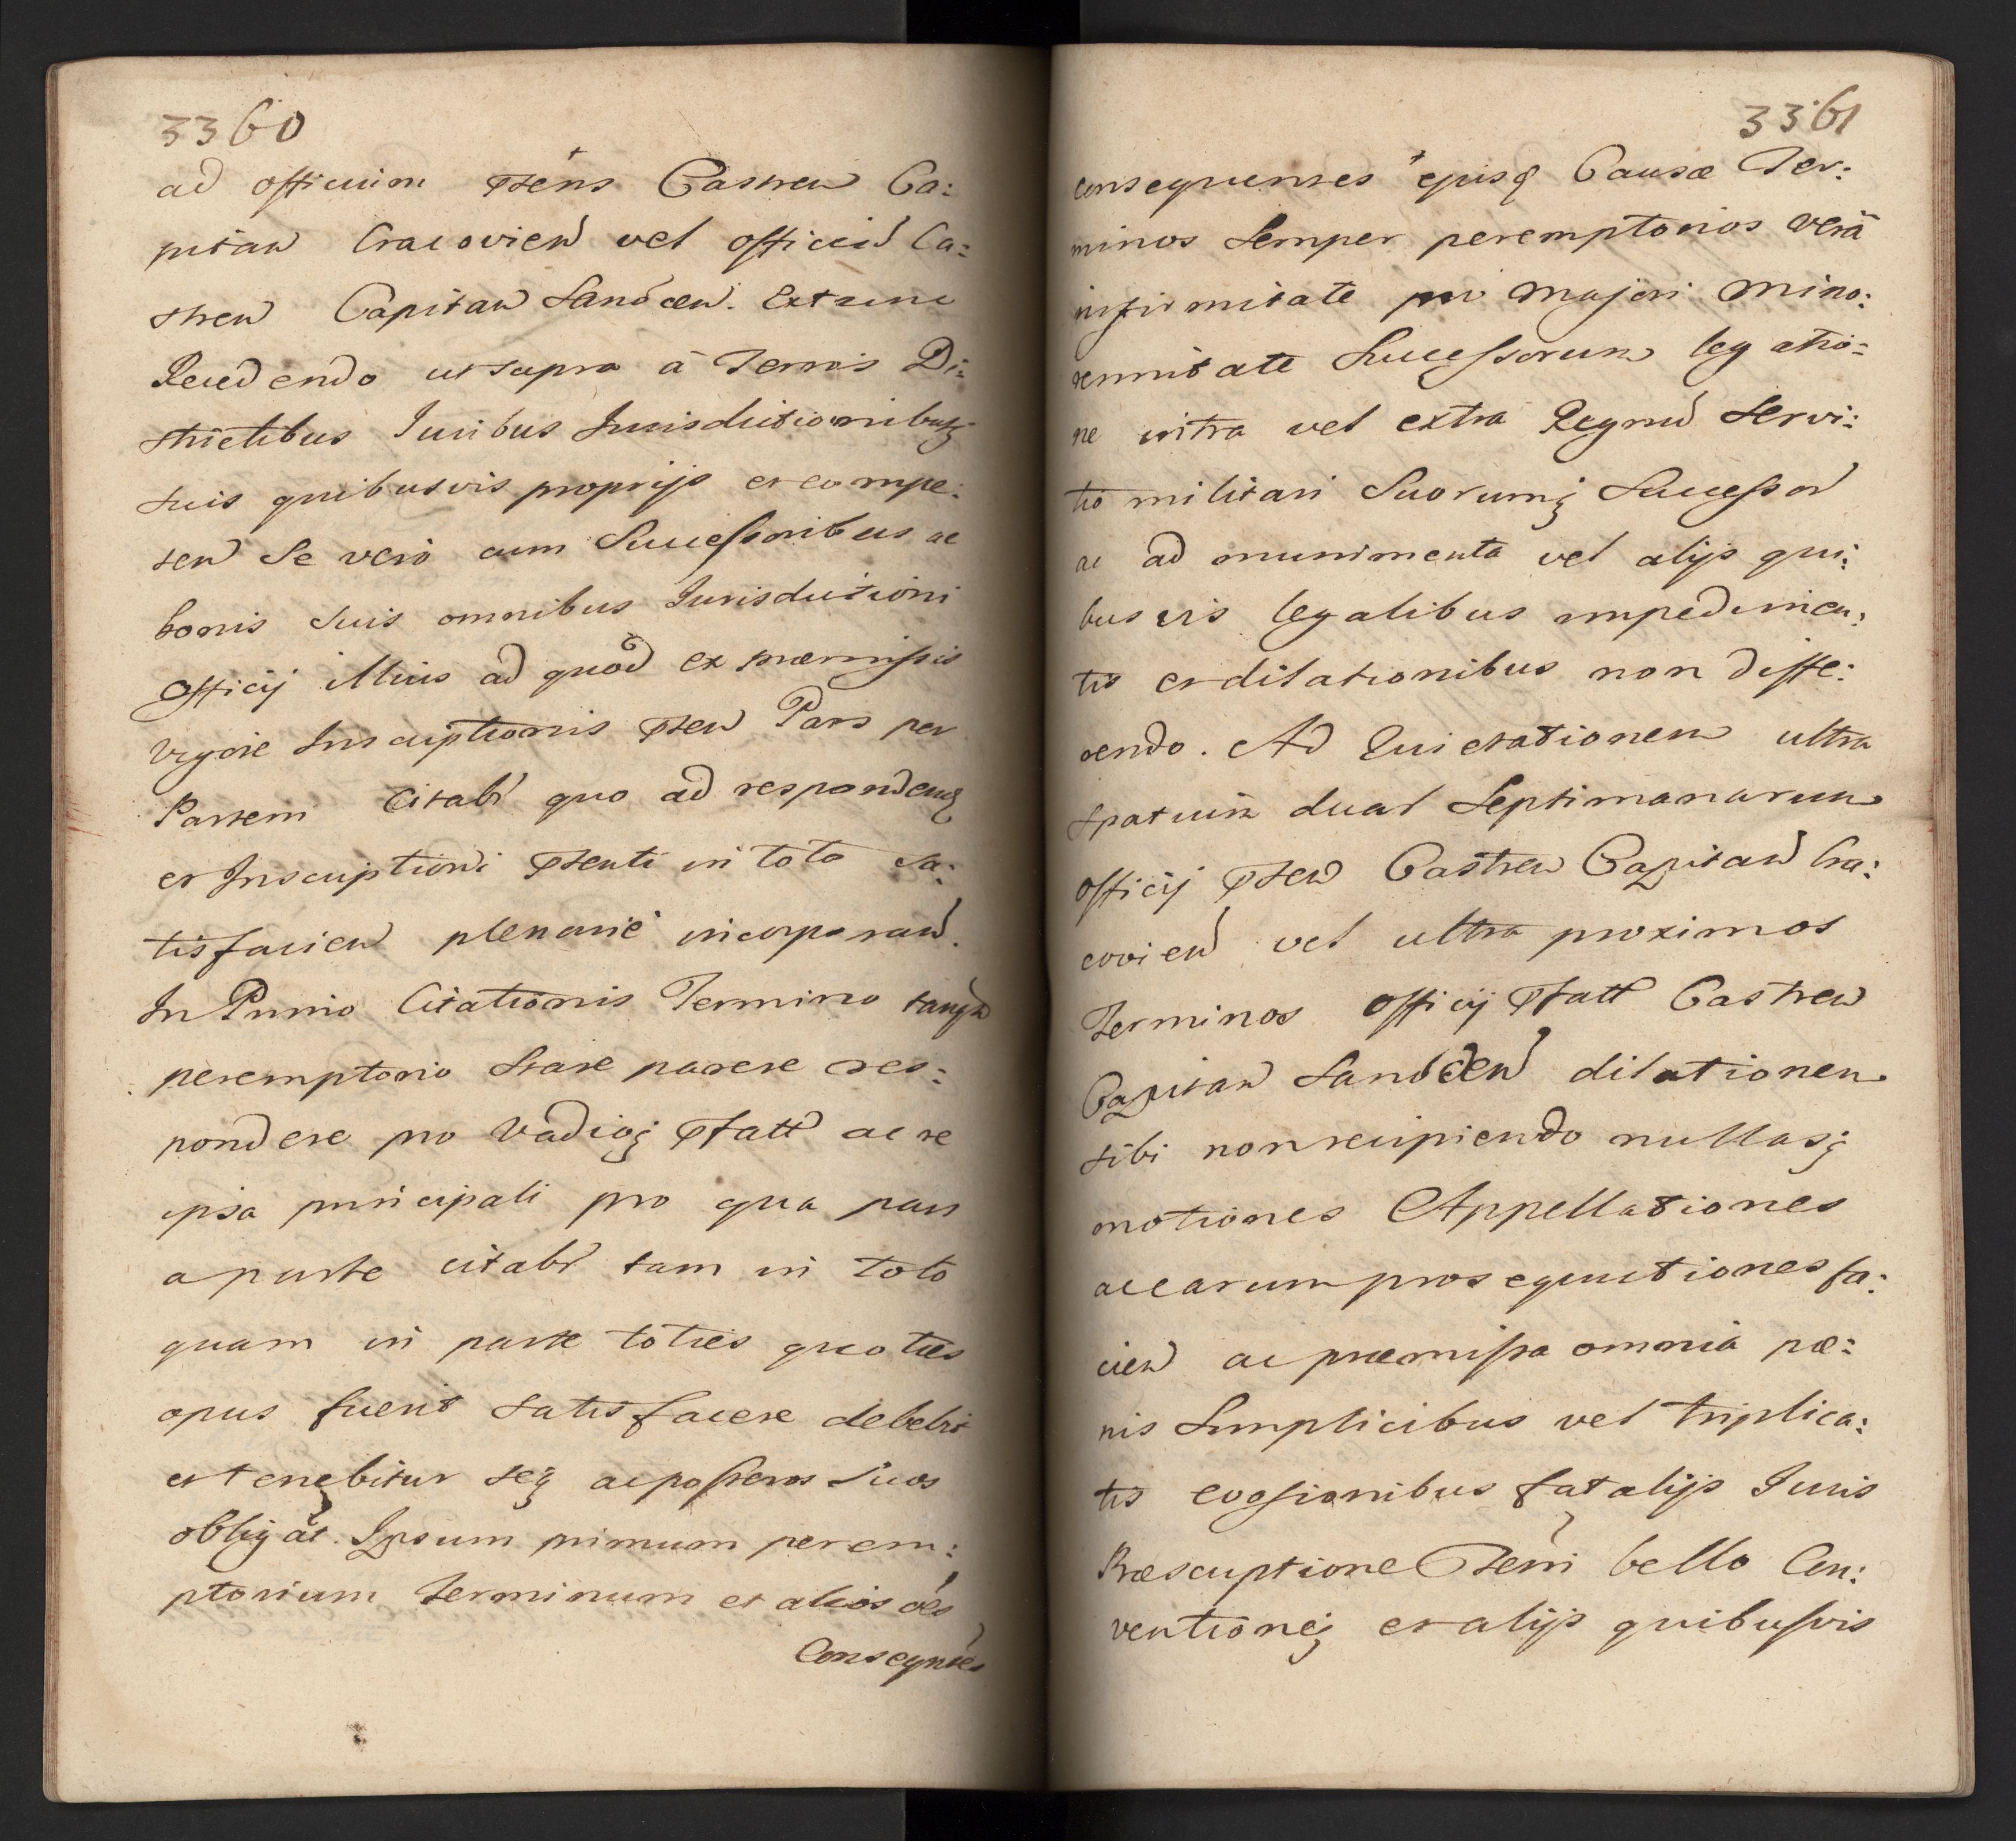 3360
ad officium Ptens Castren Ca:
pitan Cracovien vel officiū Ca:
stren Capitan Sandecen. Extunc
Recedendo ut supra à Terris Di:
strictibus Juribus Jurisdictionibusq
suis quibusvis proprijs et compe:
ten Se vero cum Successoribus ac
bonis suis omnibus Jurisdictioni
Officij illius ad quod ex præmissis
vigore Inscriptionis Pten Pars per
Partem Citabr quo ad respondenq
et Inscriptioni Ptenti in toto sa:
tisfacien plenarie incorporan.
In Primo Citationis Termino tanqm
peremptorio Stare parere res:
pondere pro Vadioq Pfatt ac re
ipsa principali pro qua pars
a parte citabr tam in toto
quam in parte toties quoties
opus fuerit satisfacere debebit
et tenebitur seq ac posteros suos
obligāt. Ipsum primum perem:
ptorium Terminum et alios oēs
Consequtēs
3361
consequentes ejusq Causæ Ter:
minos Semper peremptorios verâ
infirmitate pri majori mino:
rennitate Successorum legatio:
ne intra vel extra Regnū Servi:
tio militari Suorumq Successor
ac ad munimenta vel alijs qui:
busvis legalibus impedimen:
tis et dilationibus non diffe:
rendo. Ad Quietationem ultra
Spatium duar Septimanarum
officij Pten Castren Capitan Cra:
covien vel ultra proximos
Terminos officij Pfatt Castren
Capitan Sandecen dilationem
sibi non recipiendo nullasq
motiones Appellationes
ac earum prosequutiones fa:
cien ac præmissa omnia pæ:
nis Simplicibus vel triplica:
tis evasionibus fatalijs Juris
Præscriptione Terri bello Con:
ventioneq et alijs quibusvis